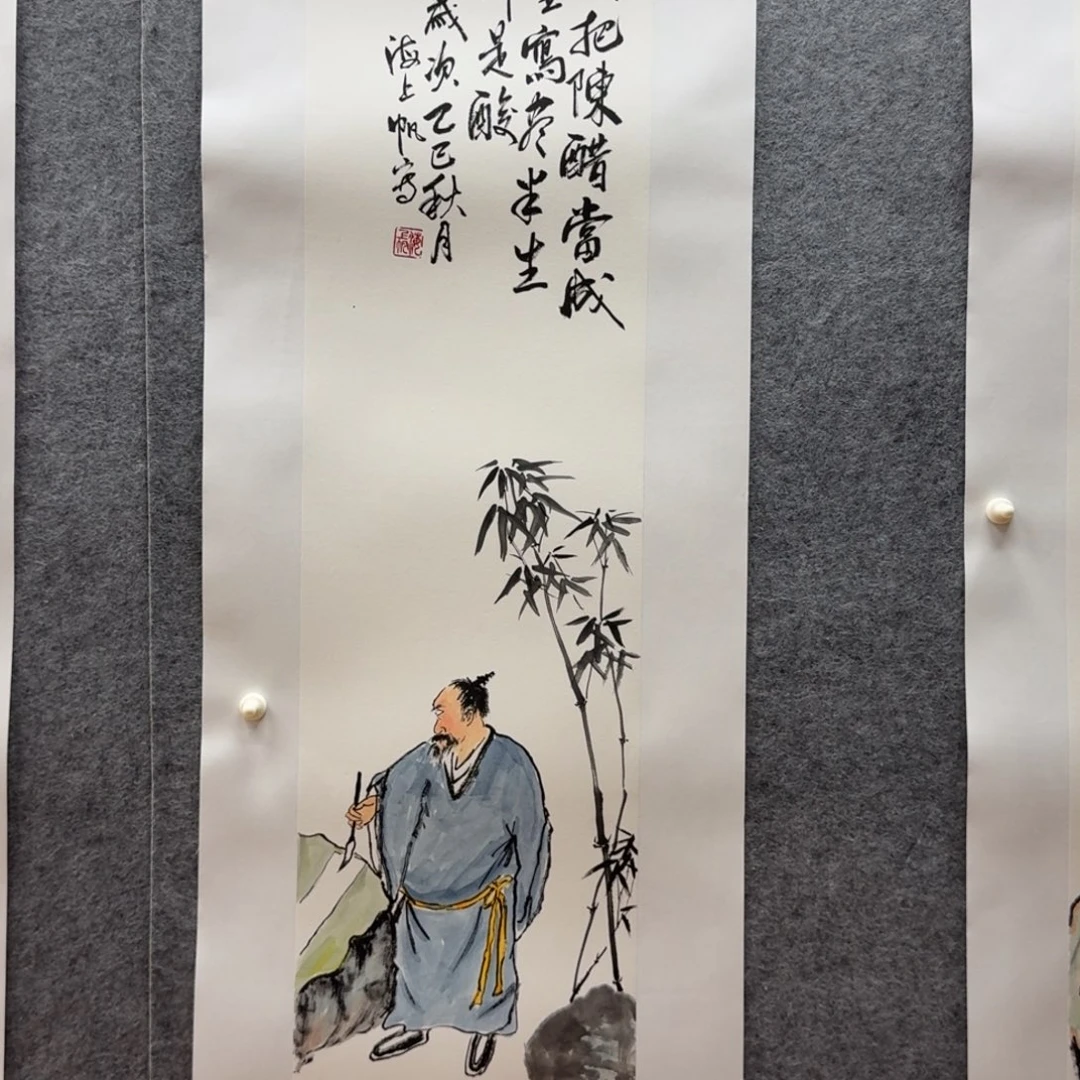 把陳醋當成
寫盡半生
是酸
歲次乙巳秋月
海上帆寫